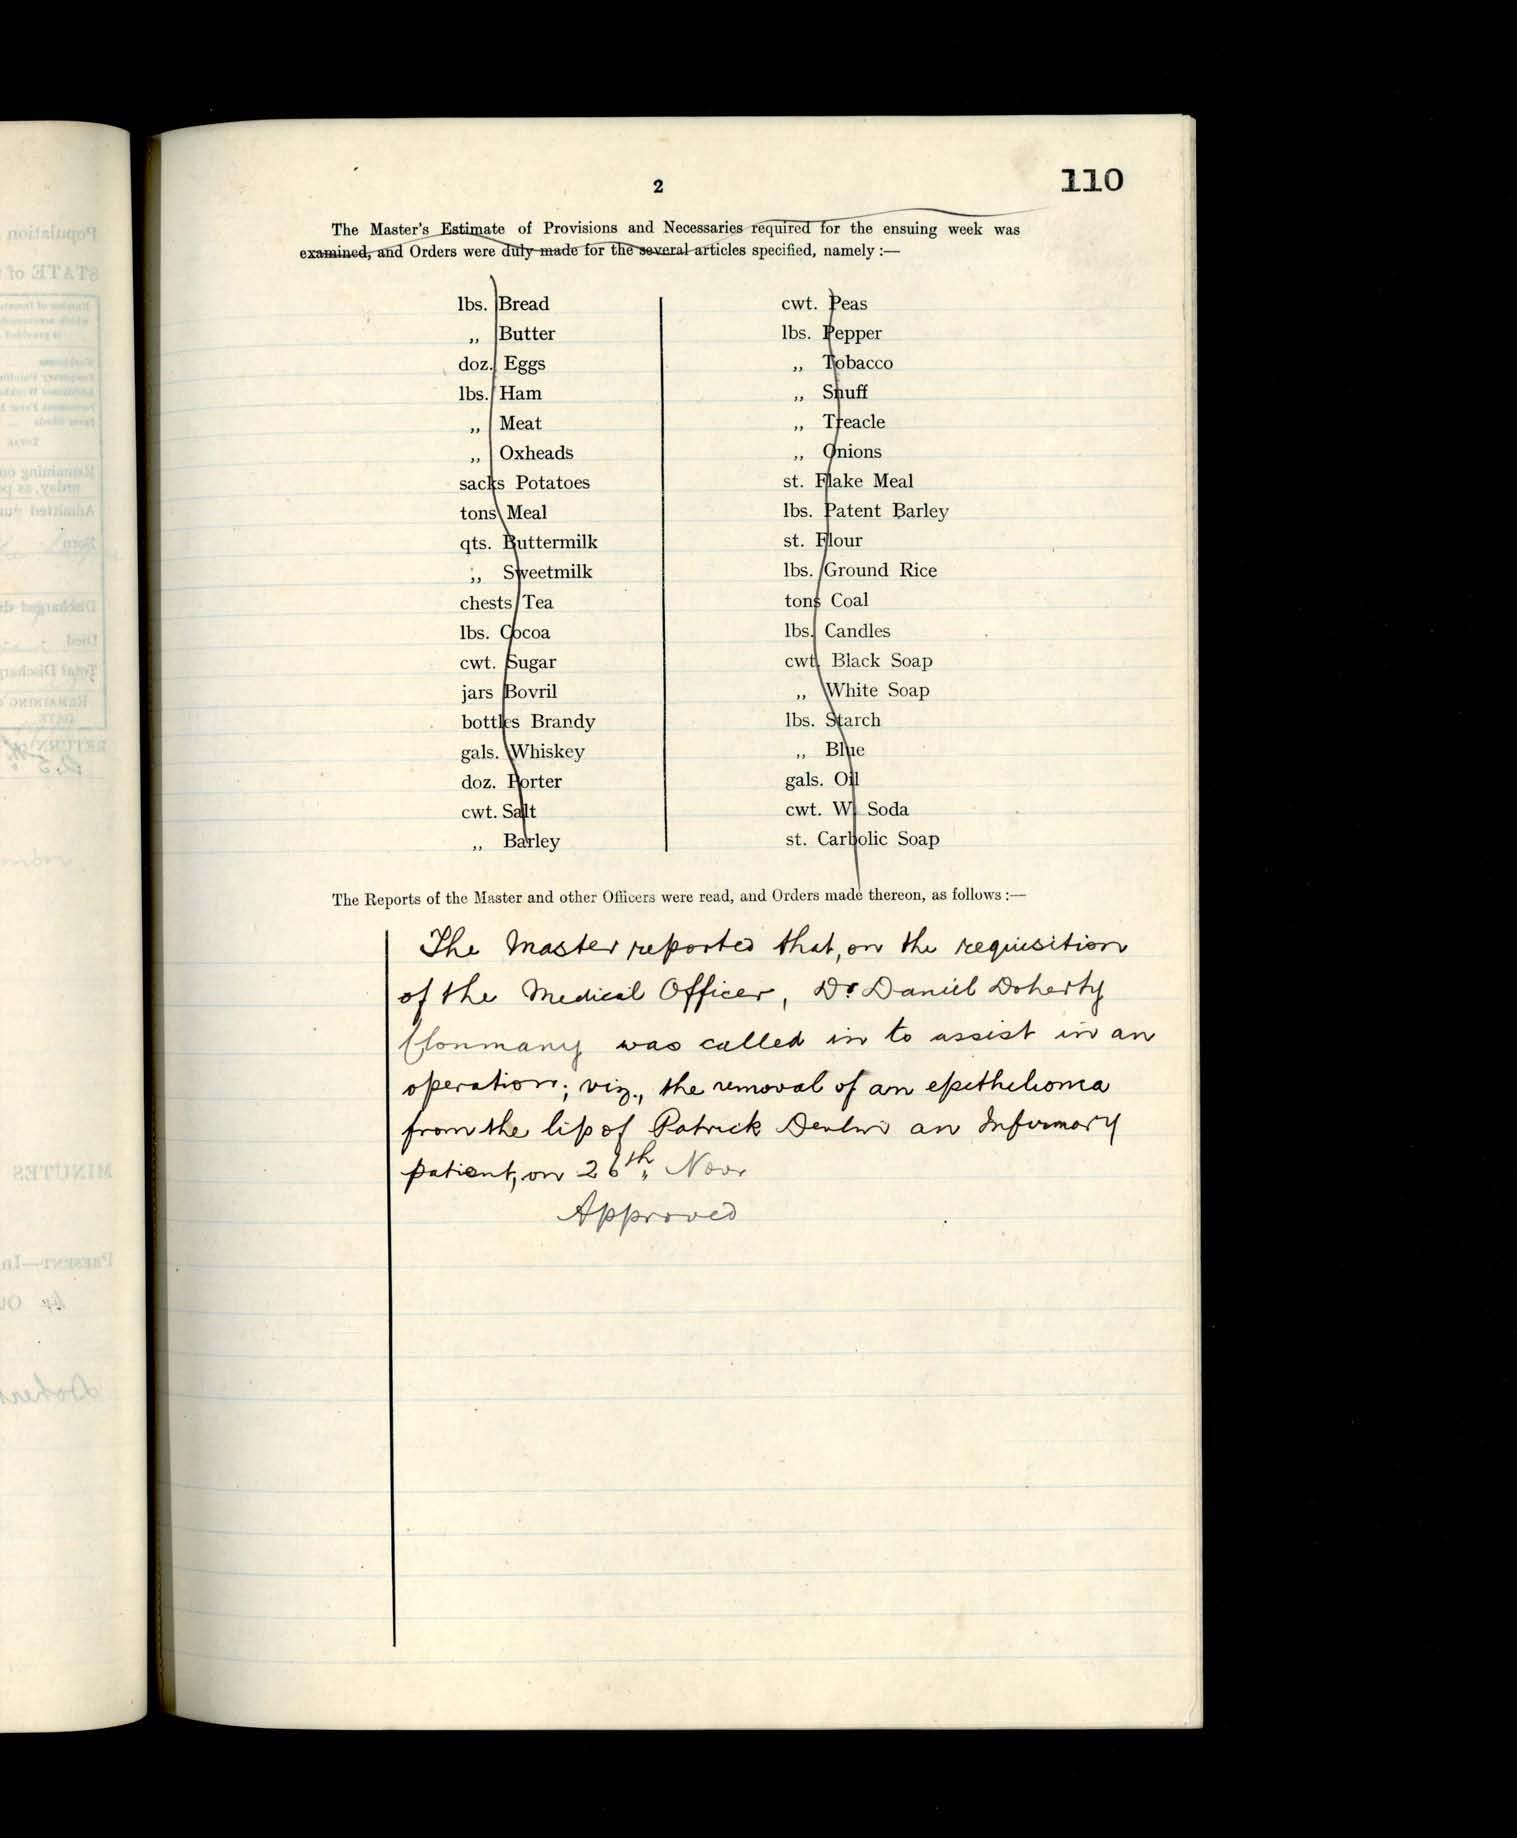 2
110
The Master's Estimate of Provisions and Necessaries required for the ensuing week was
examined, and Orders were duly made for the several articles specified, namely :—
lbs. Bread
„ Butter
doz. Eggs
lbs. Ham
„ Meat
„ Oxheads
sacks Potatoes
tons Meal
qts. Buttermilk
„ Sweetmilk
chests Tea
lbs. Cocoa
cwt. Sugar
jars Bovril
bottles Brandy
gals. Whiskey
doz. Porter
cwt. Salt
„ Barley
cwt. Peas
lbs. Pepper
„ Tobacco
„ Snuff
„ Treacle
„ Onions
st. Flake Meal
lbs. Patent Barley
st. Flour
lbs. Ground Rice
tons Coal
lbs. Candles
cwt. Black Soap
„ White Soap
lbs. Starch
„ Blue
gals. Oil
cwt. W. Soda
st. Carbolic Soap
The Reports of the Master and other Officers were read, and Orders made thereon, as follows :—
The Master reported that, on the requisition
of the Medical Officer, Dr Daniel Doherty
Clonmany was called in to assist in an
operation; viz., the removal of an epithelioma
from the lip of Patrick Devlin an Infirmary
patient, on 26th Novr
Approved